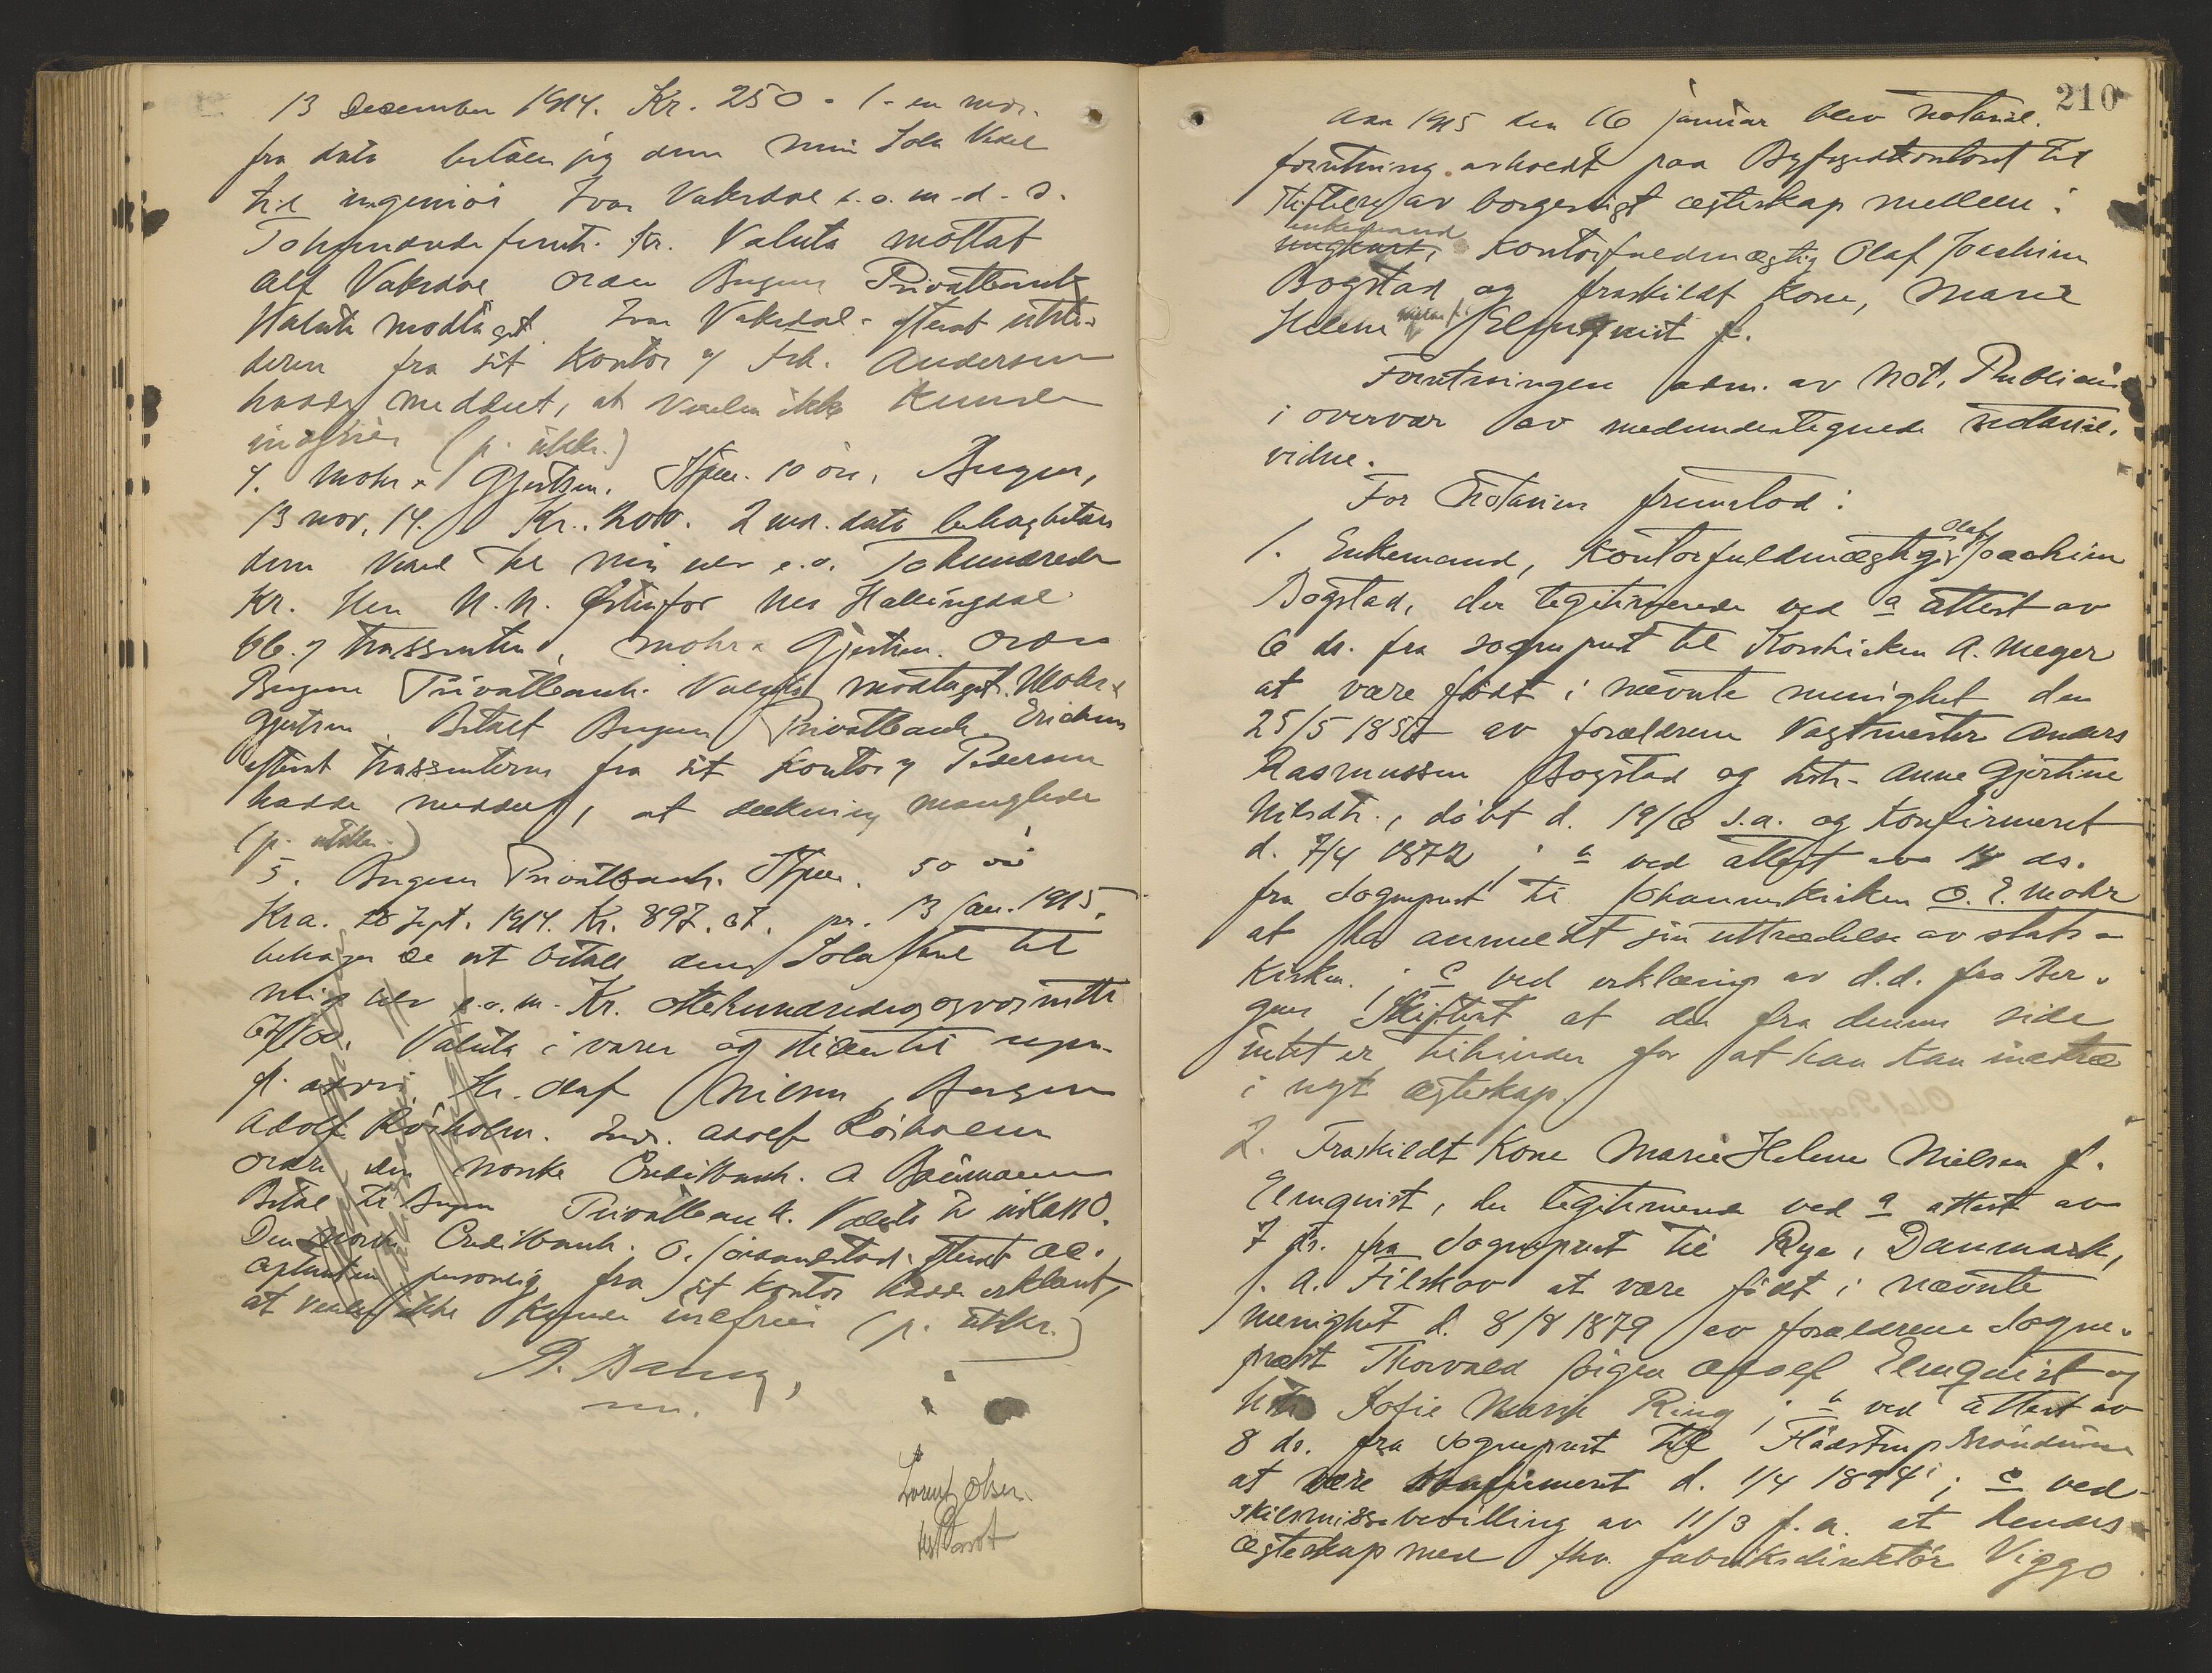 13 December 1914. Kr. 250 - 1 - en mdr.
fra dato betaler jeg denne min Sola Veksel
til ingeniör Ivar Vaksdal e. o. m - d - S.
Tohundrede femti Kr. Valuta mottat
Alf Vaksdal ordre Bergens Privatbank
Valuta modtaget. Ivar Vaksdal -
deren fra sit Kontor v/ Frk. Andersen
hadde meddelt, at Vexelen ikke kunde
indfries (p. utkr.)
4. Mohr & Gjertsen. Stpm. 10 öre, Bergen,
13 nov. 14. Kr. 200. 2 md. dato behag betale
denne Vexel til min selv e. o. To hundrede
Kr. Herr N. N. Nes Hallingdal
bb. v/ trassenten, Mohr & Gjertsen. Ordre
Bergens Privatbank. Valuta modtaget. Mohr &
Gjertsen. Betalt Bergens Privatbank. Erichsen
efterat trassenterne fra sit Kontor v/ Pedersen
hadde meddelt, at dækning manglede
(p. utkr.)
5. Bergens Privatbank. Stpm. 50 öre
Kra. 28 Sept. 1914. Kr. 897.67. pr. 13 Jan. 1915.
behager De at betale denne Sola Vexel til
mig selv e. o. m. Kr. Ottehundrede og syv og nitti
67/100. Valuta i varer og stilles til regn.
Hr. Olaf Nilsen, Bergen
Adolf Röiholm. End. Adolf Röiholm
ordre den norske Creditbank. A
Betal til Bergens Privatbank. Valuta
Den norske Creditbank. O. efterat ac-
ceptanten personlig fra sit Kontor hadde erklært,
at vexelen ikke kunde indfries (p. utkr.)
Lorentz Olsen
210
Aar 1915 den 16 januar blev notarial-
forretning avholdt paa Byfogedkontoret til
stiftelse av borgerligt ægteskap mellem:
enkemand
ungkarl, Kontorfuldmægtig Olaf Joachim
Bogstad og fraskildt Kone, Marie
Helene Nielsen f. Elmquist f.
Forretningen adm. av Not. Publicus
i overvær av medundertegnede notarial-
vidne.
For Notarius fremstod:
1. Enkemand, Kontorfuldmægtig Olaf Joachim
Bogstad, der legitimerede ved a attest av
6 ds. fra sogneprest til Korskirken A. Meyer
at være födt i nævnte menighet den
25/5 185 av forældrene Vagtmester Anders
Rasmussen Bogstad og hstr. Anne Gjertine
Nilsdtr., döbt d. 19/6 s.a. og konfirmeret
d. 7/4 1872; b ved attest av ds.
fra Sogneprest til Johanneskirken O. E. Mohr
at ha anmeldt sin uttrædelse av stats-
kirken.; c ved erklæring av d.d. fra Ber-
gens Skifteret at der fra denne side
intet er tilhinder for at han kan indtræ
i nyt ægteskap.
2. Fraskildt Kone Marie Helene Nielsen f.
Elmquist, der legitimerede ved a attest av
7 ds. fra Sogneprest til Rye, Danmark,
J. A. Filskov at være födt i nævnte
menighet d. 8/8 1879 av forældrene Sogne-
præst Thorvald Jörgen Adolf Elmquist og
hstr. Sofie Marie Ring; b ved attest av
8 ds. fra sogneprest til
at være konfirmeret d. 1/4 1894; c ved
skilsmissebevilling av 11/3 f. a. at hendes
ægteskap med fhv. fabrikdirektör Viggo